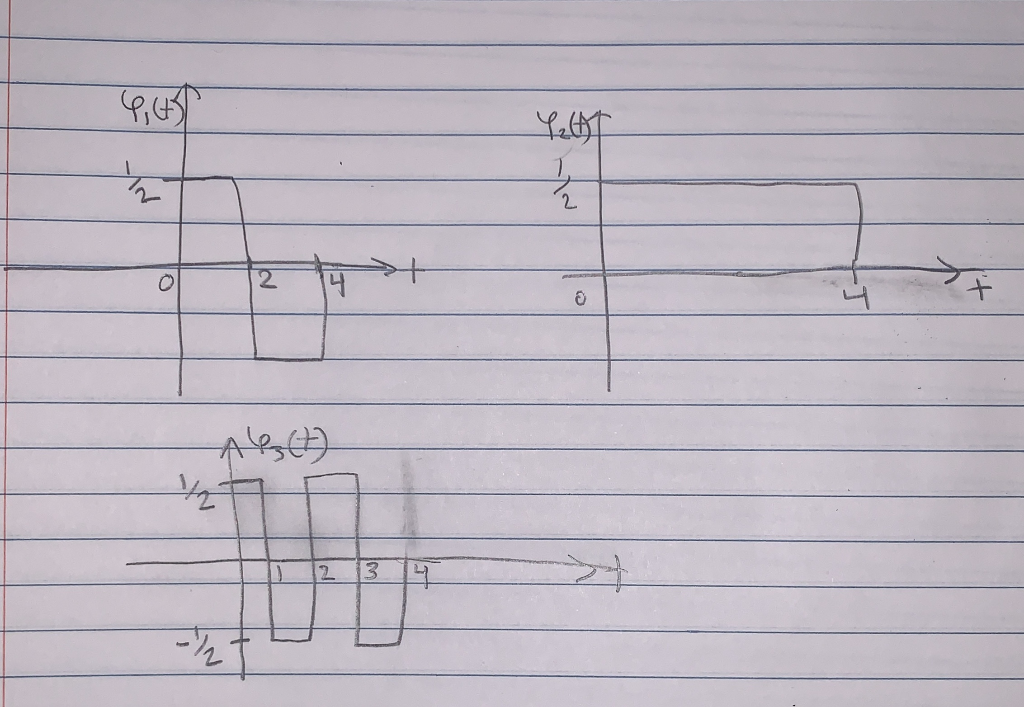 φ₁(t)
1/2
0 2 4 t
φ₂(t)
1/2
0 4 t
φ₃(t)
1/2
1 2 3 4 t
-1/2